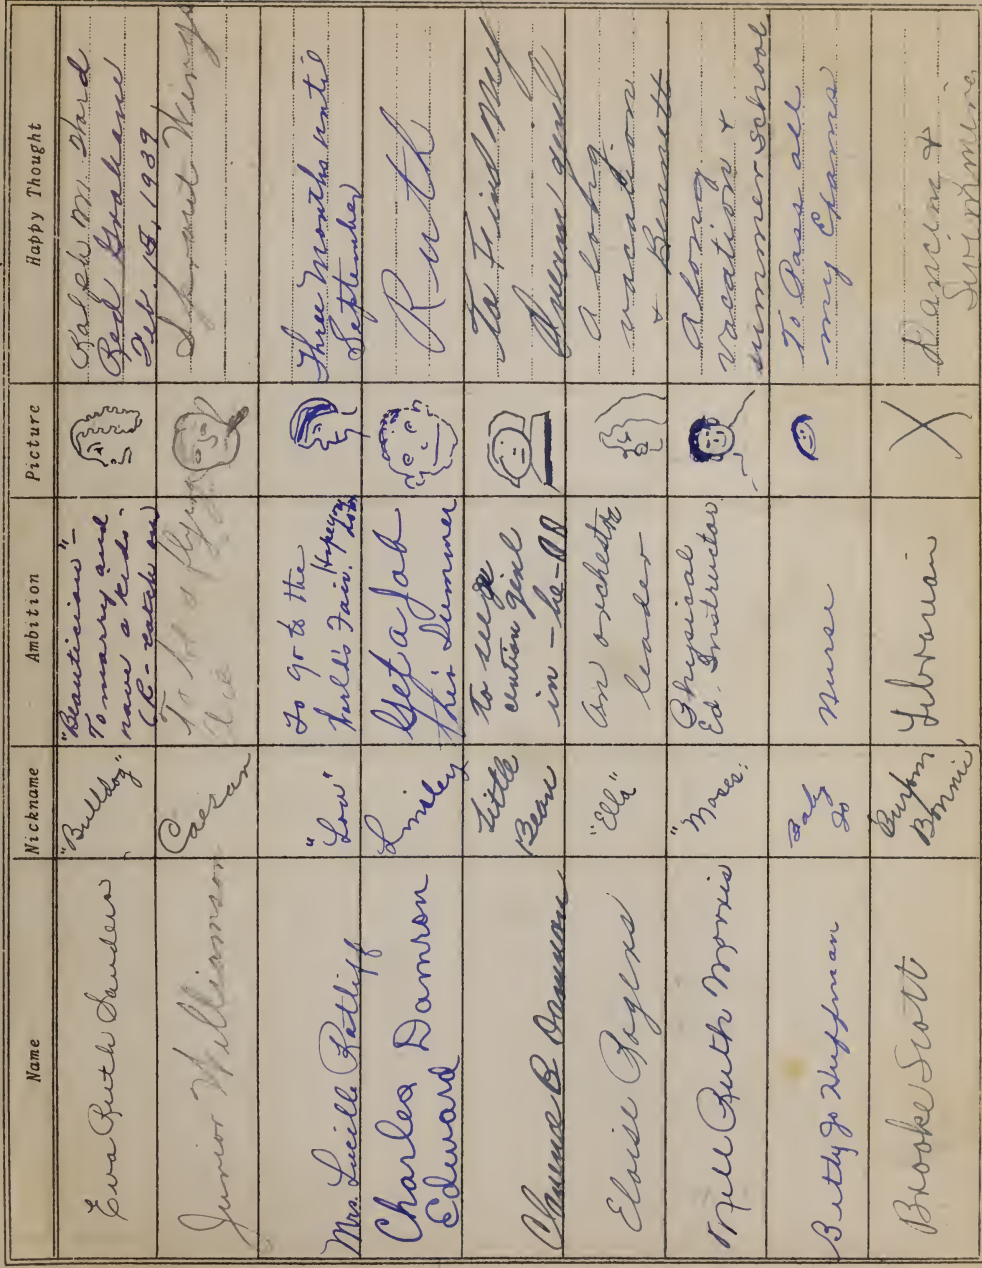 Name Nickname Ambition Picture Happy Thought
Eva Ruth Sanders
"Bulldog"
"Beautician"-
To marry and
have a kids-
(R- catch on)
Ralph M. Ward
Red Grahame
Feb. 18, 1939
Junior Williamson
Caesar
To be a flying
Ace
Sprout Wings
Mrs. Lucille Ratliff
"Low"
To go to the
World's Fair.
Three Months until
September
Charles Damron
Edward
Smiley
Get a Job
this Summer
Ruth
Clarence B Damron
Little
Bear
to see
in-
To Find My
Dream girl
Eloise Rogers
"Ella"
An orchestra
leader
A long
vacation
& Bennett
Nell Ruth Morris
"Moses"
Physical
Ed. Instructor
A long
vacation &
summer school
Betty Jo Huffman
Baby
Jo
Nurse
To Pass all
my Exams
Brooke Scott
Buxom
Bonnie
Librarian
Dancing &
Swimming